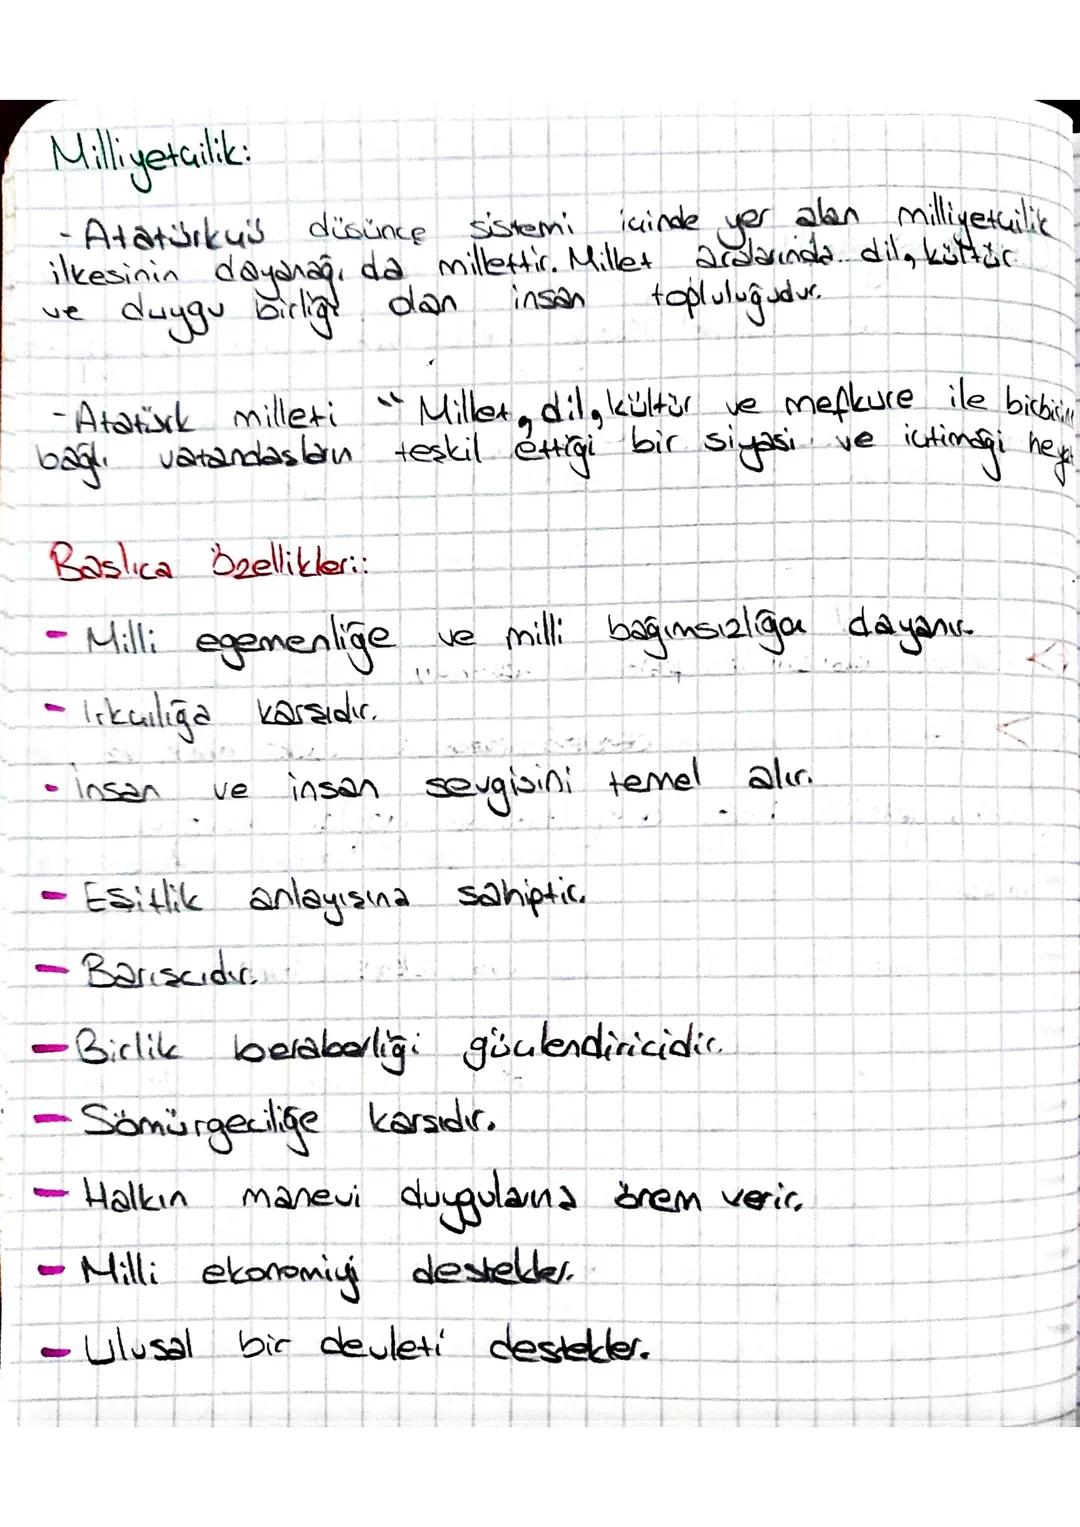 Milliyetçilik:
- Atatürkçü düşünce sistemi içinde yer alan milliyetçilik
ilkesinin dayanağı da millettir. Millet aralarında dil, kültür
ve duygu birliği olan insan topluluğudur.
- Atatürk milleti "Millet, dil, kültür ve mefkure ile birbirin
bağlı vatandasların teşkil ettiği bir siyasi ve içtimağı heye
Baslıca özellikleri:
- Milli egemenliğe ve milli bağımsızlığa dayanır.
- Irkçılığa karsıdır.
- insan ve insan sevgisini temel alır.
- Esitlik anlayısına sahiptir.
- Barıscıdır.
- Birlik beraberliği güçlendiricidir.
- Sömürgeciliğe karsıdır.
- Halkın manevi duygularına önem verir.
- Milli ekonomiyi destekler.
- Ulusal bir devleti destekler.